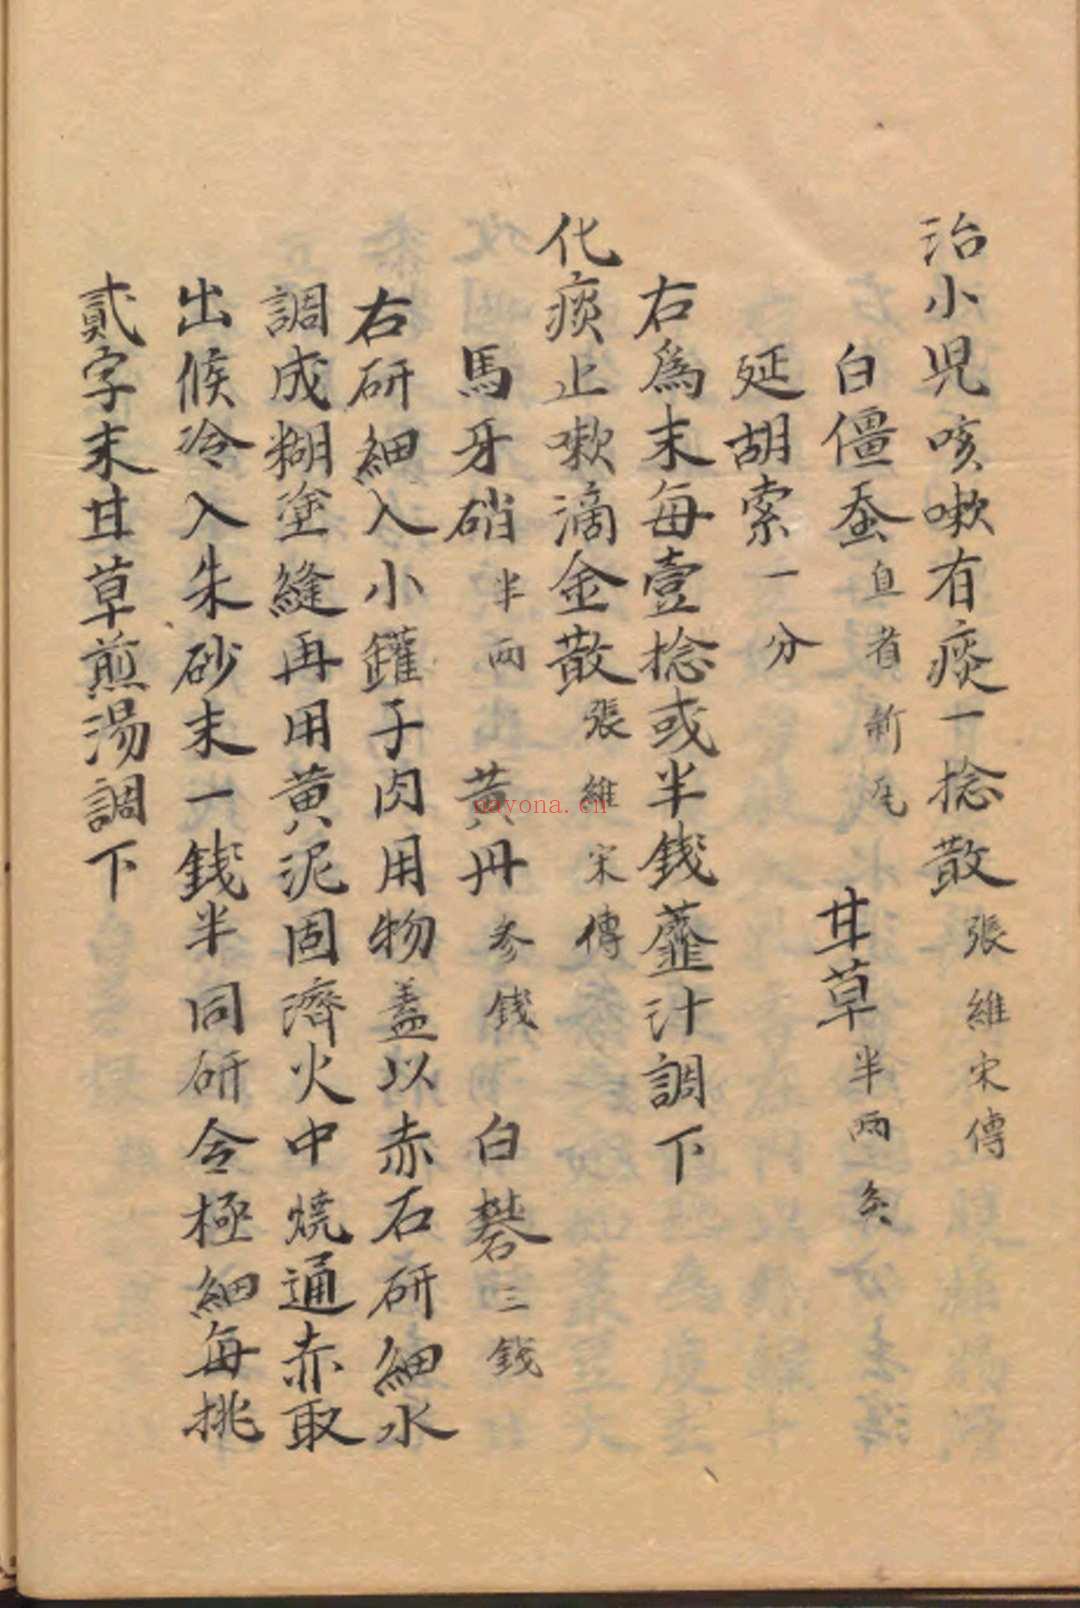 治小児咳嗽有痰一捻散張維宋傳
白僵蚕直者新瓦 甘草半兩炙
延胡索一分
右為末每壹捻或半錢虀汁調下
化痰止嗽滴金散張維宋傳
馬牙硝半兩 黄丹叁錢 白礬三錢
右研細入小鑵子肉用物盖以赤石研細水
調成糊塗縫再用黄泥固濟火中燒通赤取
出候冷入朱砂末一錢半同研令極細每挑
貳字末甘草煎湯調下
nayona.cn